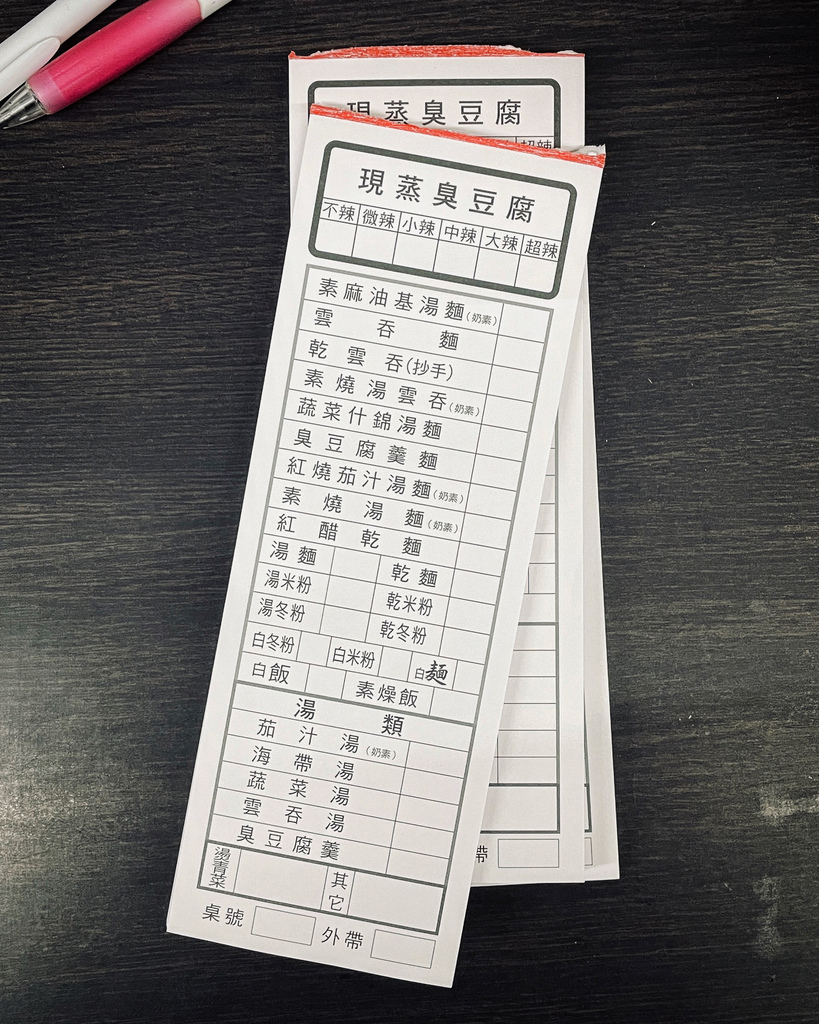 現蒸臭豆腐
超辣
現蒸臭豆腐
不辣 微辣 小辣 中辣 大辣 超辣
素麻油基湯麵(奶素)
雲吞麵
乾雲吞(抄手)
素燒湯雲吞(奶素)
蔬菜什錦湯麵
臭豆腐羹麵
紅燒茄汁湯麵(奶素)
素燒湯麵(奶素)
紅醋乾麵
湯麵 乾麵
湯米粉 乾米粉
湯冬粉 乾冬粉
白冬粉 白米粉 白麵
白飯 素燥飯
湯類
茄汁湯(奶素)
海帶湯
蔬菜湯
雲吞湯
臭豆腐羹
燙青菜 其它
桌號 外帶
帶